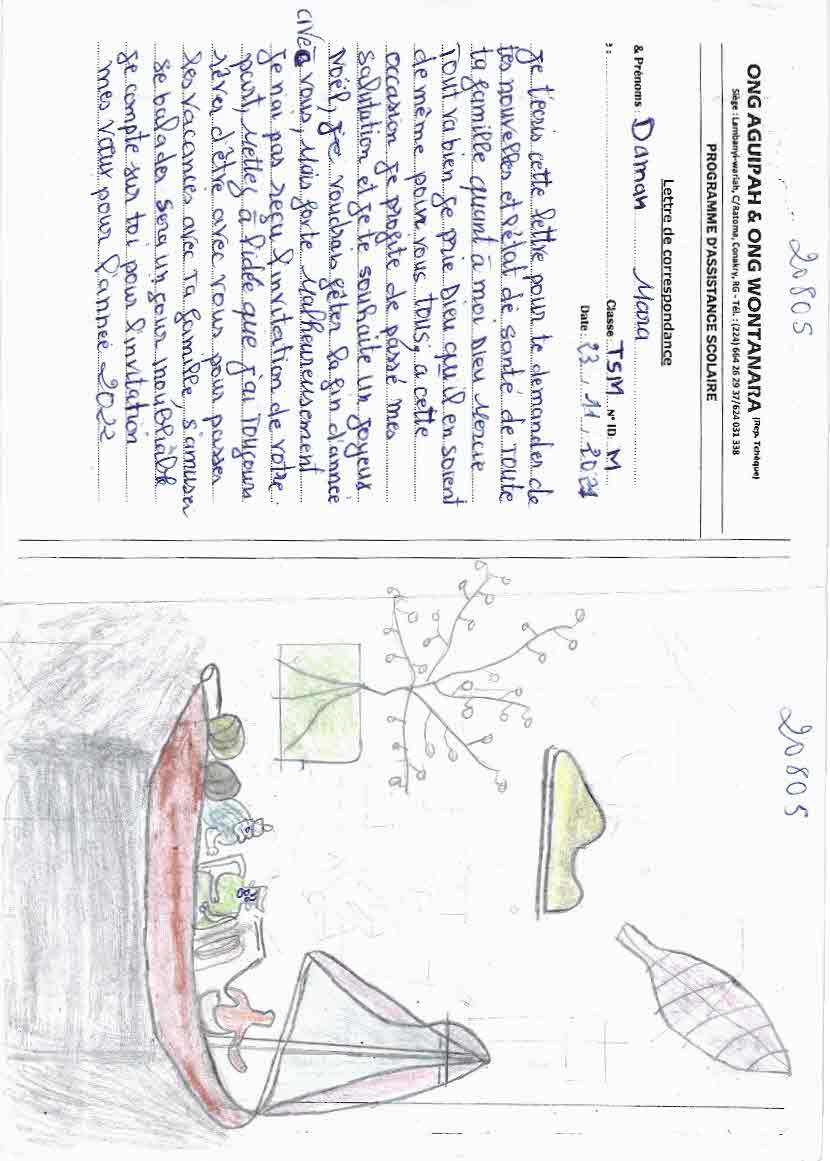 20805
ONG AGUIPAH & ONG WONTANARA (Rep. Tchèque)
Siège : Lambanyi-wariah, C/Ratoma, Conakry, RG - Tél. : (224) 664 26 29 37/624 031 338
PROGRAMME D'ASSISTANCE SCOLAIRE
Lettre de correspondance
& Prénoms : Daman Mara
Classe : TSM N° ID. M
Date : 23, 11, 2021
Je t'ecris cette lettre pour te demander de
tes nouvelles et l'état de santé de toute
ta famille quant à moi Dieu Mercie
tout va bien je prie Dieu qu'il en soient
de même pour vous tous, a cette
occasion je profite de passé mes
salutation et je te souhaite un joyeux
Noël, je voudrais fêter la fin d'annee
avec vous, Mais forte Malheureusement
je n'ai pas reçu l'invitation de votre
part, Mettez à l'idée que j'ai toujours
rêver d'être avec vous pour passer
les vacances avec ta famille, s'amuser
se balader sera un jour inoubliable
je compte sur toi pour l'invitation
mes vœux pour l'année 2022
20805